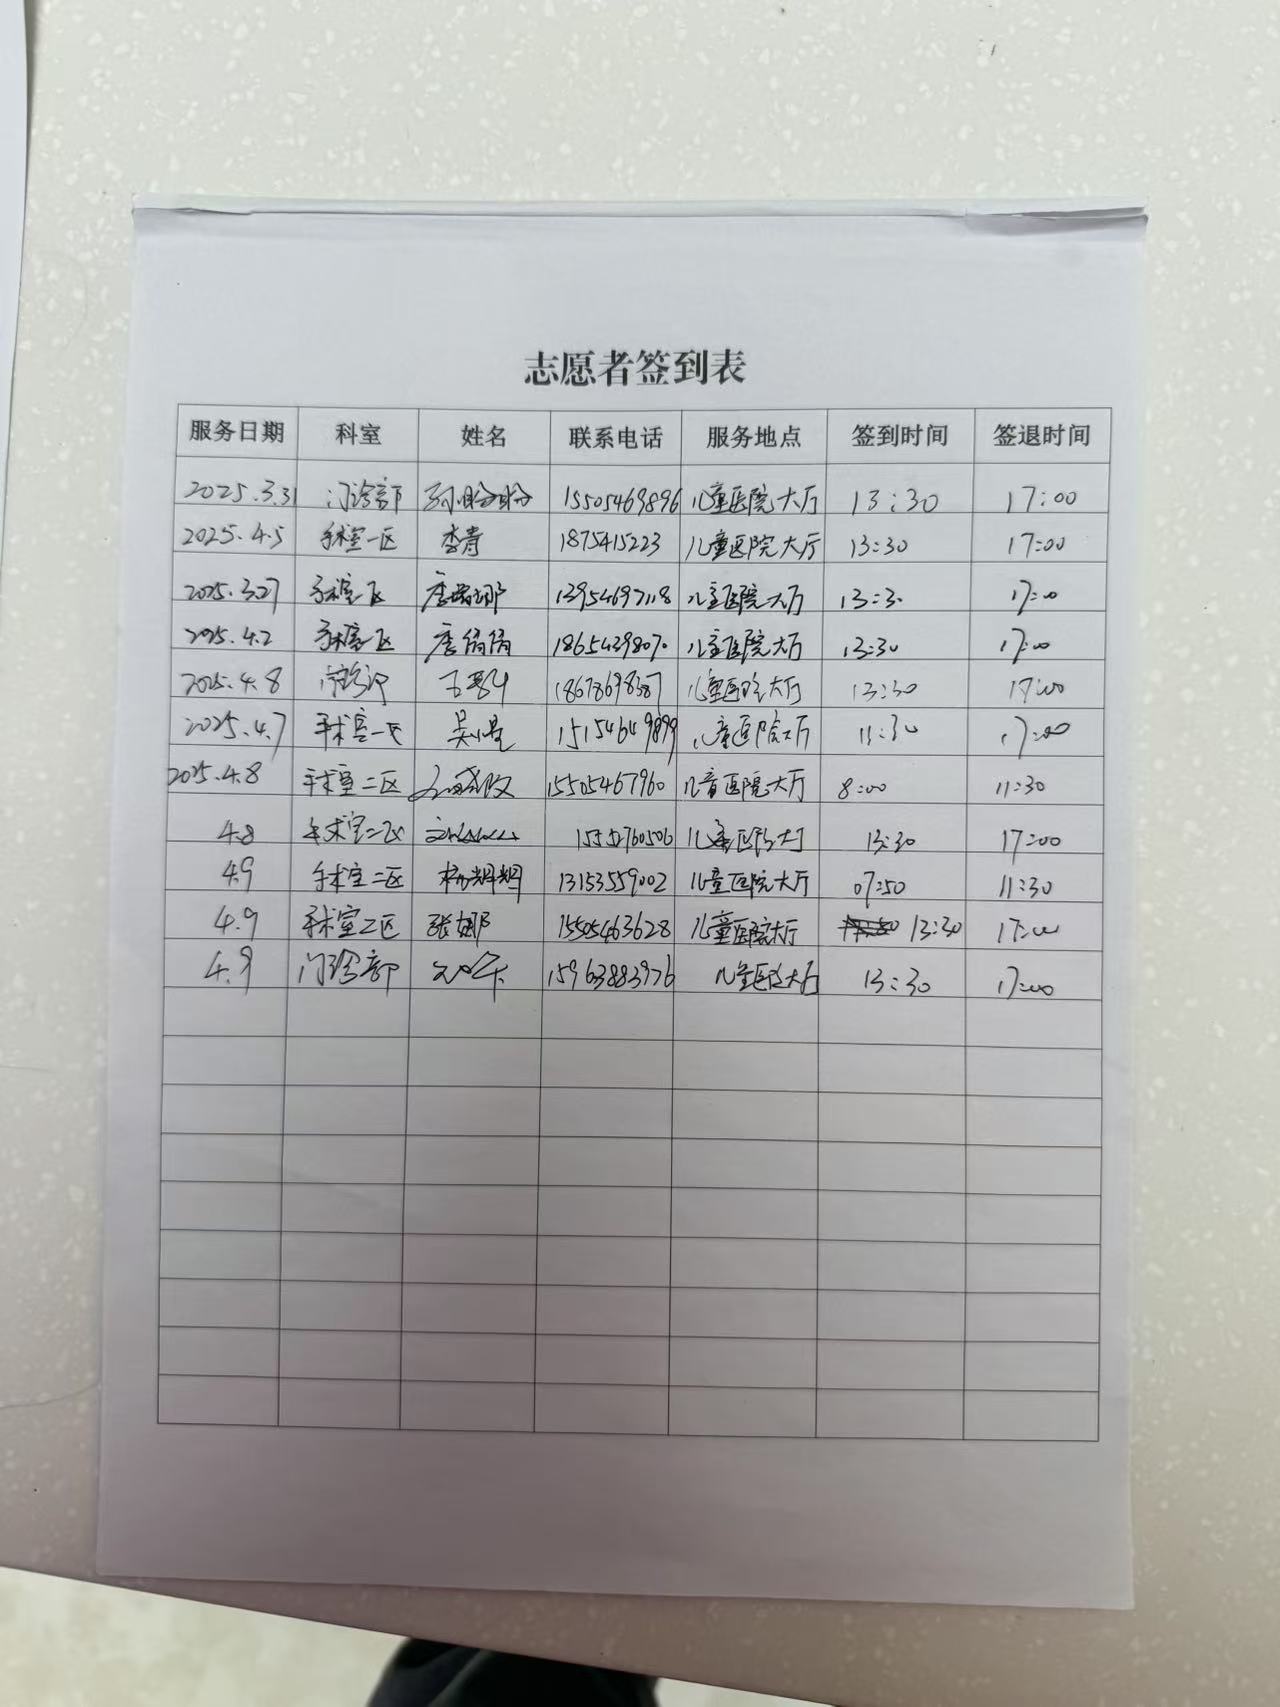 志愿者签到表
服务日期 科室 姓名 联系电话 服务地点 签到时间 签退时间
2025.3.31 门诊部 孙盼盼 15505469896 儿童医院大厅 13:30 17:00
2025.4.5 手术室一区 李青 1875415223 儿童医院大厅 13:30 17:00
2025.3.27 手术室一区 13954697118 儿童医院大厅 13:30 17:00
2025.4.2 手术室一区 儿童医院大厅 13:30 17:00
2025.4.8 门诊部 18678698387 儿童医院大厅 13:30 17:00
2025.4.7 手术室一区 15154649899 儿童医院大厅 17:00
2025.4.8 手术室二区 15505467960 儿童医院大厅 8:00 11:30
4.8 手术室二区 儿童医院大厅 13:30 17:00
4.9 手术室二区 杨翱翔 13153559002 儿童医院大厅 07:50 11:30
4.9 手术室二区 张娜 15505463628 儿童医院大厅 13:30 17:00
4.9 门诊部 15963883976 儿童医院大厅 13:30 17:00